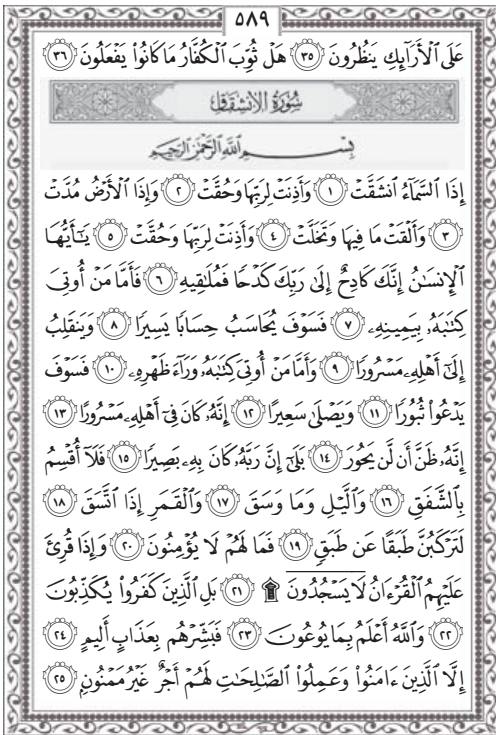 ٥٨٩
عَلَى ٱلْأَرَآئِكِ يَنظُرُونَ ٣٥ هَلْ ثُوِّبَ ٱلْكُفَّارُ مَا كَانُوا۟ يَفْعَلُونَ ٣٦
سُورَةُ الانشِقَاقِ
بِسْمِ ٱللَّهِ ٱلرَّحْمَٰنِ ٱلرَّحِيمِ
إِذَا ٱلسَّمَآءُ ٱنشَقَّتْ ١ وَأَذِنَتْ لِرَبِّهَا وَحُقَّتْ ٢ وَإِذَا ٱلْأَرْضُ مُدَّتْ
٣ وَأَلْقَتْ مَا فِيهَا وَتَخَلَّتْ ٤ وَأَذِنَتْ لِرَبِّهَا وَحُقَّتْ ٥ يَٰٓأَيُّهَا
ٱلْإِنسَٰنُ إِنَّكَ كَادِحٌ إِلَىٰ رَبِّكَ كَدْحًا فَمُلَٰقِيهِ ٦ فَأَمَّا مَنْ أُوتِىَ
كِتَٰبَهُۥ بِيَمِينِهِۦ ٧ فَسَوْفَ يُحَاسَبُ حِسَابًا يَسِيرًا ٨ وَيَنقَلِبُ
إِلَىٰٓ أَهْلِهِۦ مَسْرُورًا ٩ وَأَمَّا مَنْ أُوتِىَ كِتَٰبَهُۥ وَرَآءَ ظَهْرِهِۦ ١٠ فَسَوْفَ
يَدْعُوا۟ ثُبُورًا ١١ وَيَصْلَىٰ سَعِيرًا ١٢ إِنَّهُۥ كَانَ فِىٓ أَهْلِهِۦ مَسْرُورًا ١٣
إِنَّهُۥ ظَنَّ أَن لَّن يَحُورَ ١٤ بَلَىٰٓ إِنَّ رَبَّهُۥ كَانَ بِهِۦ بَصِيرًا ١٥ فَلَآ أُقْسِمُ
بِٱلشَّفَقِ ١٦ وَٱلَّيْلِ وَمَا وَسَقَ ١٧ وَٱلْقَمَرِ إِذَا ٱتَّسَقَ ١٨
لَتَرْكَبُنَّ طَبَقًا عَن طَبَقٍ ١٩ فَمَا لَهُمْ لَا يُؤْمِنُونَ ٢٠ وَإِذَا قُرِئَ
عَلَيْهِمُ ٱلْقُرْءَانُ لَا يَسْجُدُونَ ۩ ٢١ بَلِ ٱلَّذِينَ كَفَرُوا۟ يُكَذِّبُونَ
٢٢ وَٱللَّهُ أَعْلَمُ بِمَا يُوعُونَ ٢٣ فَبَشِّرْهُم بِعَذَابٍ أَلِيمٍ ٢٤
إِلَّا ٱلَّذِينَ ءَامَنُوا۟ وَعَمِلُوا۟ ٱلصَّٰلِحَٰتِ لَهُمْ أَجْرٌ غَيْرُ مَمْنُونٍۭ ٢٥